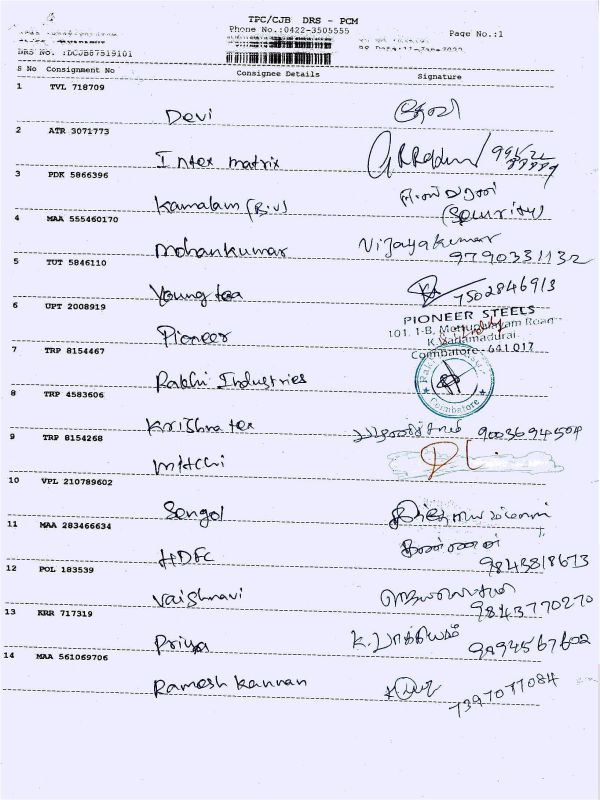 TPC/CJB DRS - PCM
Phone No.:0422-3505555
Page No.:1
DRS No. :DCJB87519101
S No Consignment No Consignee Details Signature
1 TVL 718709
Devi தேவி
2 ATR 3071773
Intex matrix
3 PDK 5866396
Kamalam (B.v)
(Security)
4 MAA 555460170
Mohankumar Vijayakumar
9790331132
5 TUT 5846110
Young tea 7502846913
6 UPT 2008919
Pioneer
PIONEER STEELS
101, 1-B, Road
K.Vadamadurai
Coimbatore - 641 017
7 TRP 8154467
Rakhi Industries
Coimbatore
8 TRP 4583606
Krishna tex 9003694504
9 TRP 8154268
10 VPL 210789602
Sengol
11 MAA 283466634
HDFC கண்ணன்
9843818673
12 POL 183539
Vaishnavi
9843770270
13 KRR 717319
Priya K. பாக்கியம் 9894567602
14 MAA 561069706
Ramesh Kannan
7397077084